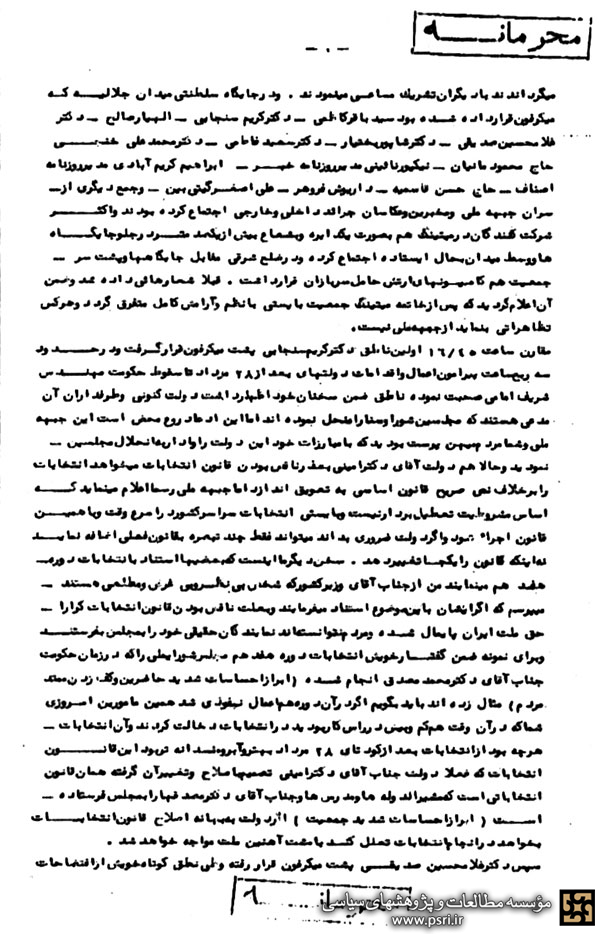 محرمانه
- ۰ -
میگرداندند با دیگران تشریک مساعی مینمودند . و در جایگاه سلطنتی میدان جلالیه که
میکرفون قرار داده شده بود سید باقر کاظمی - دکتر کریم سنجابی - الهیار صالح - دکتر
غلامحسین صدیقی - دکتر شاپور بختیار - دکتر سعید فاطمی - دکتر محمد علی خنجی
حاج محمود مانیان - نیکپور نائینی مدیر روزنامه خبر - ابراهیم کریم آبادی مدیر روزنامه
اصناف - حاج حسن قاسمیه - داریوش فروهر - علی اصغر گیتی بین - و جمع دیگری از -
سران جبهه ملی و مخبرین و عکاسان جرائد داخلی و خارجی اجتماع کرده بودند و اکثر
شرکت کنندگان در میتینگ هم بصورت یک دایره و بشعاع بیش از یکصد متر در جلو جایگاه
ها و وسط میدان بحال ایستاده اجتماع کرده و در ضلع شرقی مقابل جایگاهها و پشت سر -
جمعیت هم کامیونهای ارتش حامل سربازان قرار داشت . قبلا شعارهائی داده شد و ضمن
آن اعلام گردید که پس از خاتمه میتینگ جمعیت بایستی با نظم و آرامش کامل متفرق گردد و هرکس
تظاهراتی بنماید از جبهه ملی نیست.
مقارن ساعت ۱۶/۴۵ اولین ناطق دکتر کریم سنجابی پشت میکرفون قرار گرفت و در حدود
سه ربع ساعت پیرامون اعمال و اقدامات دولتهای بعد از ۲۸ مرداد تا سقوط حکومت مهندس
شریف امامی صحبت نموده ناطق ضمن سخنان خود اظهار داشت دولت کنونی و طرفداران آن
مدعی هستند که مجلسین شورا و سنا را منحل نموده اند اما این ادعا دروغ محض است این جبهه
ملی و شما مردم میهن پرست بودید که با مبارزات خود این دولت را وادار به انحلال مجلسین -
نمودید و حالا هم دولت آقای دکتر امینی بعذر ناقص بودن قانون انتخابات میخواهد انتخابات
را بر خلاف نص صریح قانون اساسی به تعویق اندازد اما جبهه ملی رسما اعلام مینماید که
اساس مشروطیت تعطیل بردار نیست و بایستی انتخابات سراسر کشور در اسرع وقت و با همین
قانون اجراء شود و اگر دولت ضروری بداند میتواند فقط چند تبصره بقانون فعلی اضافه نماید
نه اینکه قانون را یکجا تغییر دهد . سخن دیگر ما اینست که بعضیها استناد به انتخابات دوره -
هفدهم مینمایند من از جناب آقای وزیر کشور که شخص بی نظر و بی غرض و مطلعی هستند -
میپرسم که اگر ایشان باین موضوع استناد میفرمایند و بعلت ناقص بودن قانون انتخابات کرارا -
حق ملت ایران پایمال شده و مردم نتوانسته اند نمایندگان حقیقی خود را بمجلس بفرستند
و برای نمونه ضمن گفتار خویش انتخابات دوره هفدهم مجلس شورایملی را که در زمان حکومت
جناب آقای دکتر محمد مصدق انجام شده ( ابراز احساسات شدید حاضرین و کف زدن ممتد
مردم ) مثال زده اند باید بگویم اگر در آن دوره هم اعمال نفوذی شد همین مامورین امروزی
شما که در آن وقت هم کم و بیش در راس کار بودید در انتخابات دخالت کردند و آن انتخابات -
هرچه بود از انتخابات بعد از کودتای ۲۸ مرداد بهتر و آبرومندانه تر بود این قانون
انتخابات که فعلا دولت جناب آقای دکتر امینی تصمیم باصلاح و تغییر آن گرفته همان قانون
انتخاباتی است که مشیرالدوله ها و مدرس ها و جناب آقای دکتر مصدق ها را بمجلس فرستاده -
است ( ابراز احساسات شدید جمعیت ) اگر دولت به بهانه اصلاح قانون انتخابات
بخواهد در انجام انتخابات تعلل کند با مشت آهنین ملت مواجه خواهد شد .
سپس دکتر غلامحسین صدیقی پشت میکرفون قرار رفته و طی نطق کوتاه خویش از افتضاحات
مؤسسه مطالعات و پژوهشهای سیاسی
www.psri.ir